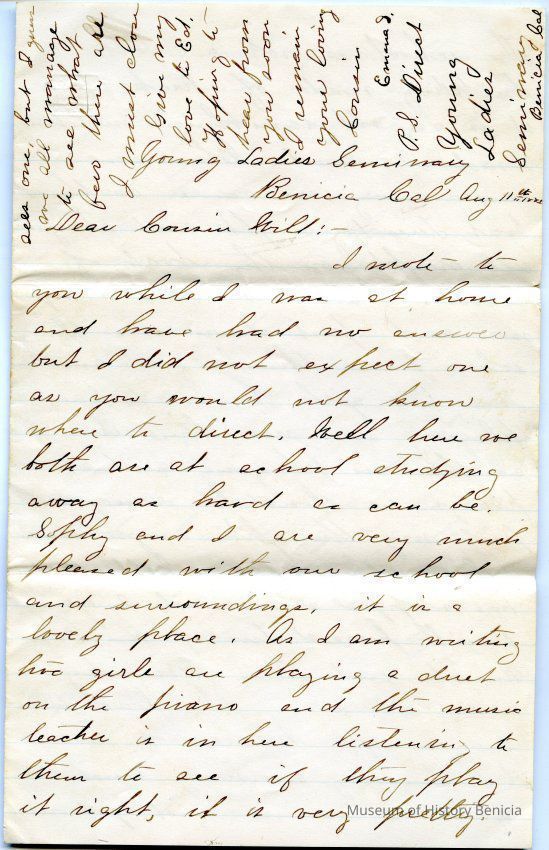 Young Ladies Seminary
Benicia Cal Aug 11th
Dear Cousin Will:-
I wrote to
you while I was at home
and have had no answer
but I did not expect one
as you would not know
where to direct. Well here we
both are at school studying
away as hard as can be.
Sophy and I are very much
pleased with our school
and surroundings, it is a
lovely place. As I am writing
two girls are playing a duet
on the piano and the music
teacher is in here listening to
them to see if they play
it right, it is very pretty.
sees one, but I guess
we all manage
to see what
few there are
I must close
Give my
love to Ed.
Hoping to
hear from
you soon
I remain
your loving
Cousin
Emma J.
P.S. Direct
Young
Ladies
Seminary
Benicia Cal
Museum of History Benicia